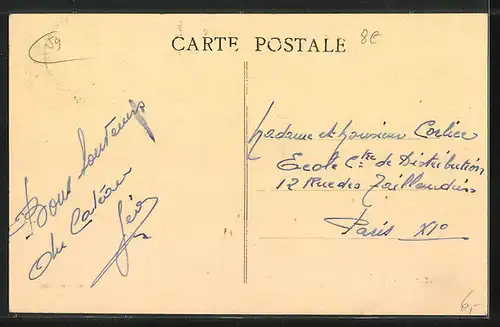 59
CARTE POSTALE
8E
Bons Souvenirs
du Cateau
Madame et Monsieur Corlier
Ecole Cale de Distribution
12 Rue des Taillandiers
Paris XIe
6,-